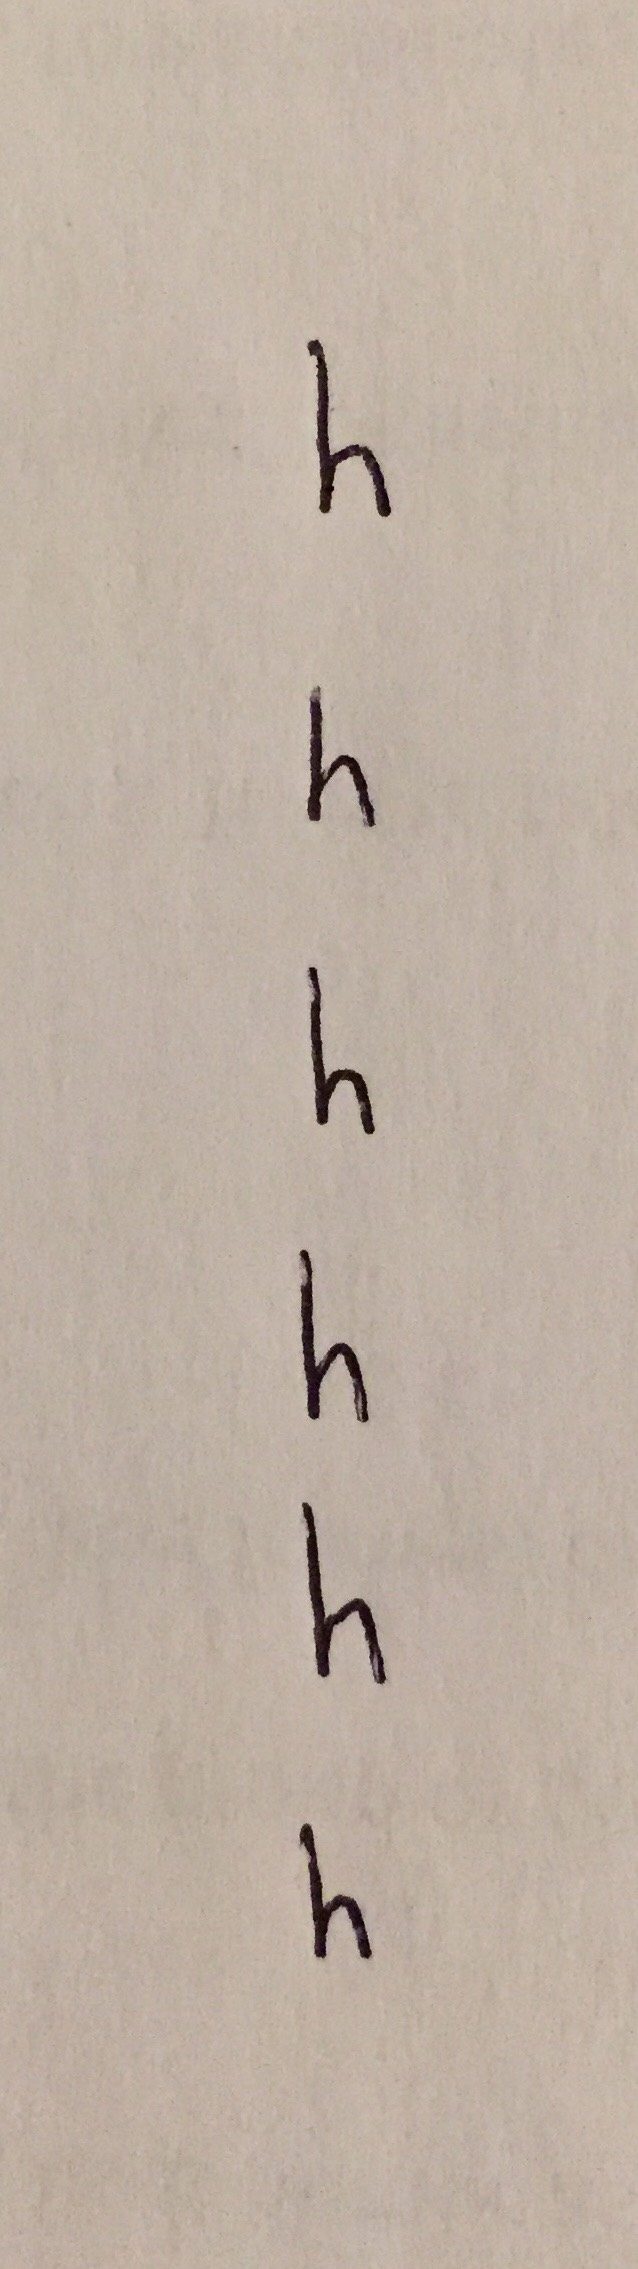 h
h
h
h
h
h